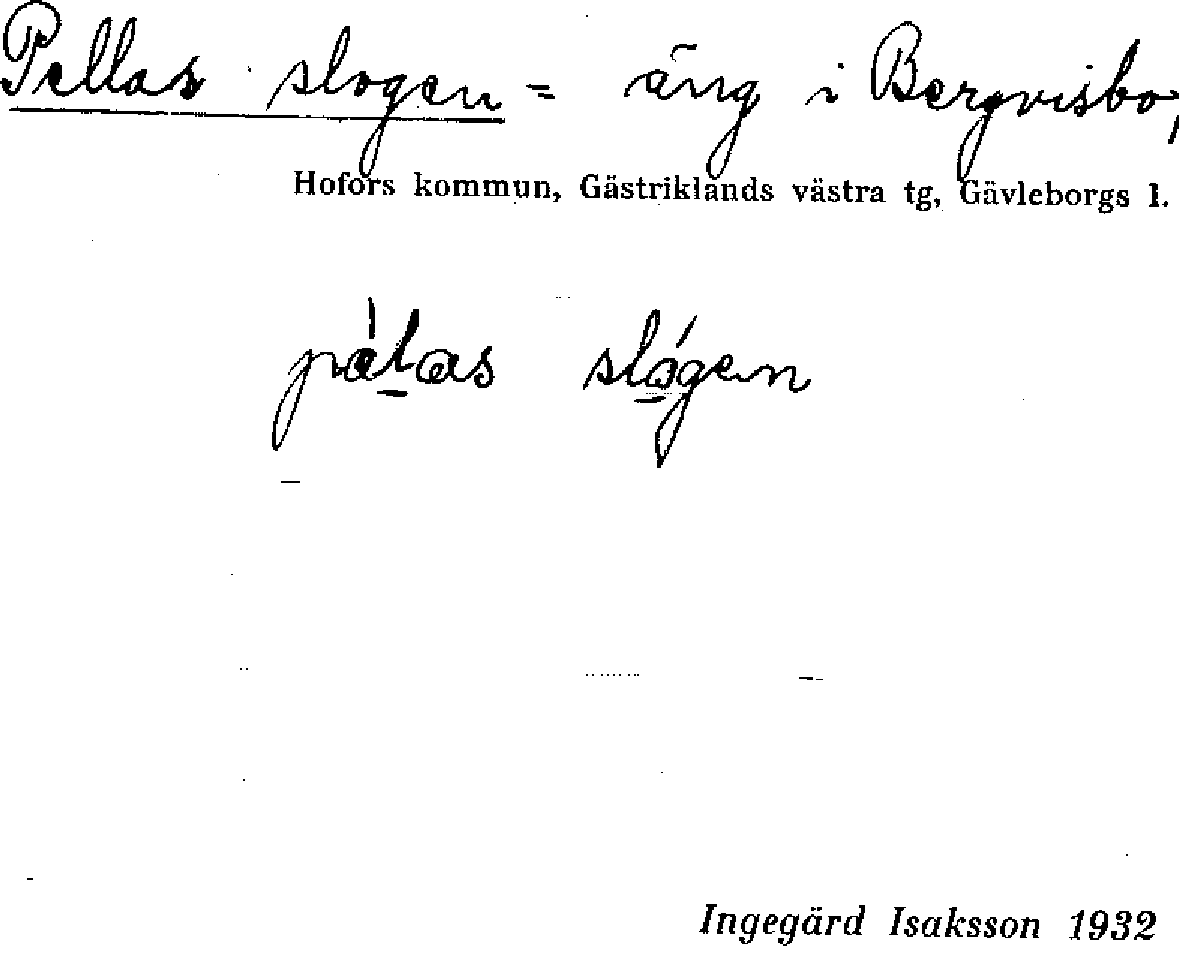 Pellas slogen = äng i Bergvisbo,
Hofors kommun, Gästriklands västra tg, Gävleborgs l.
pálas slógen
Ingegärd Isaksson 1932